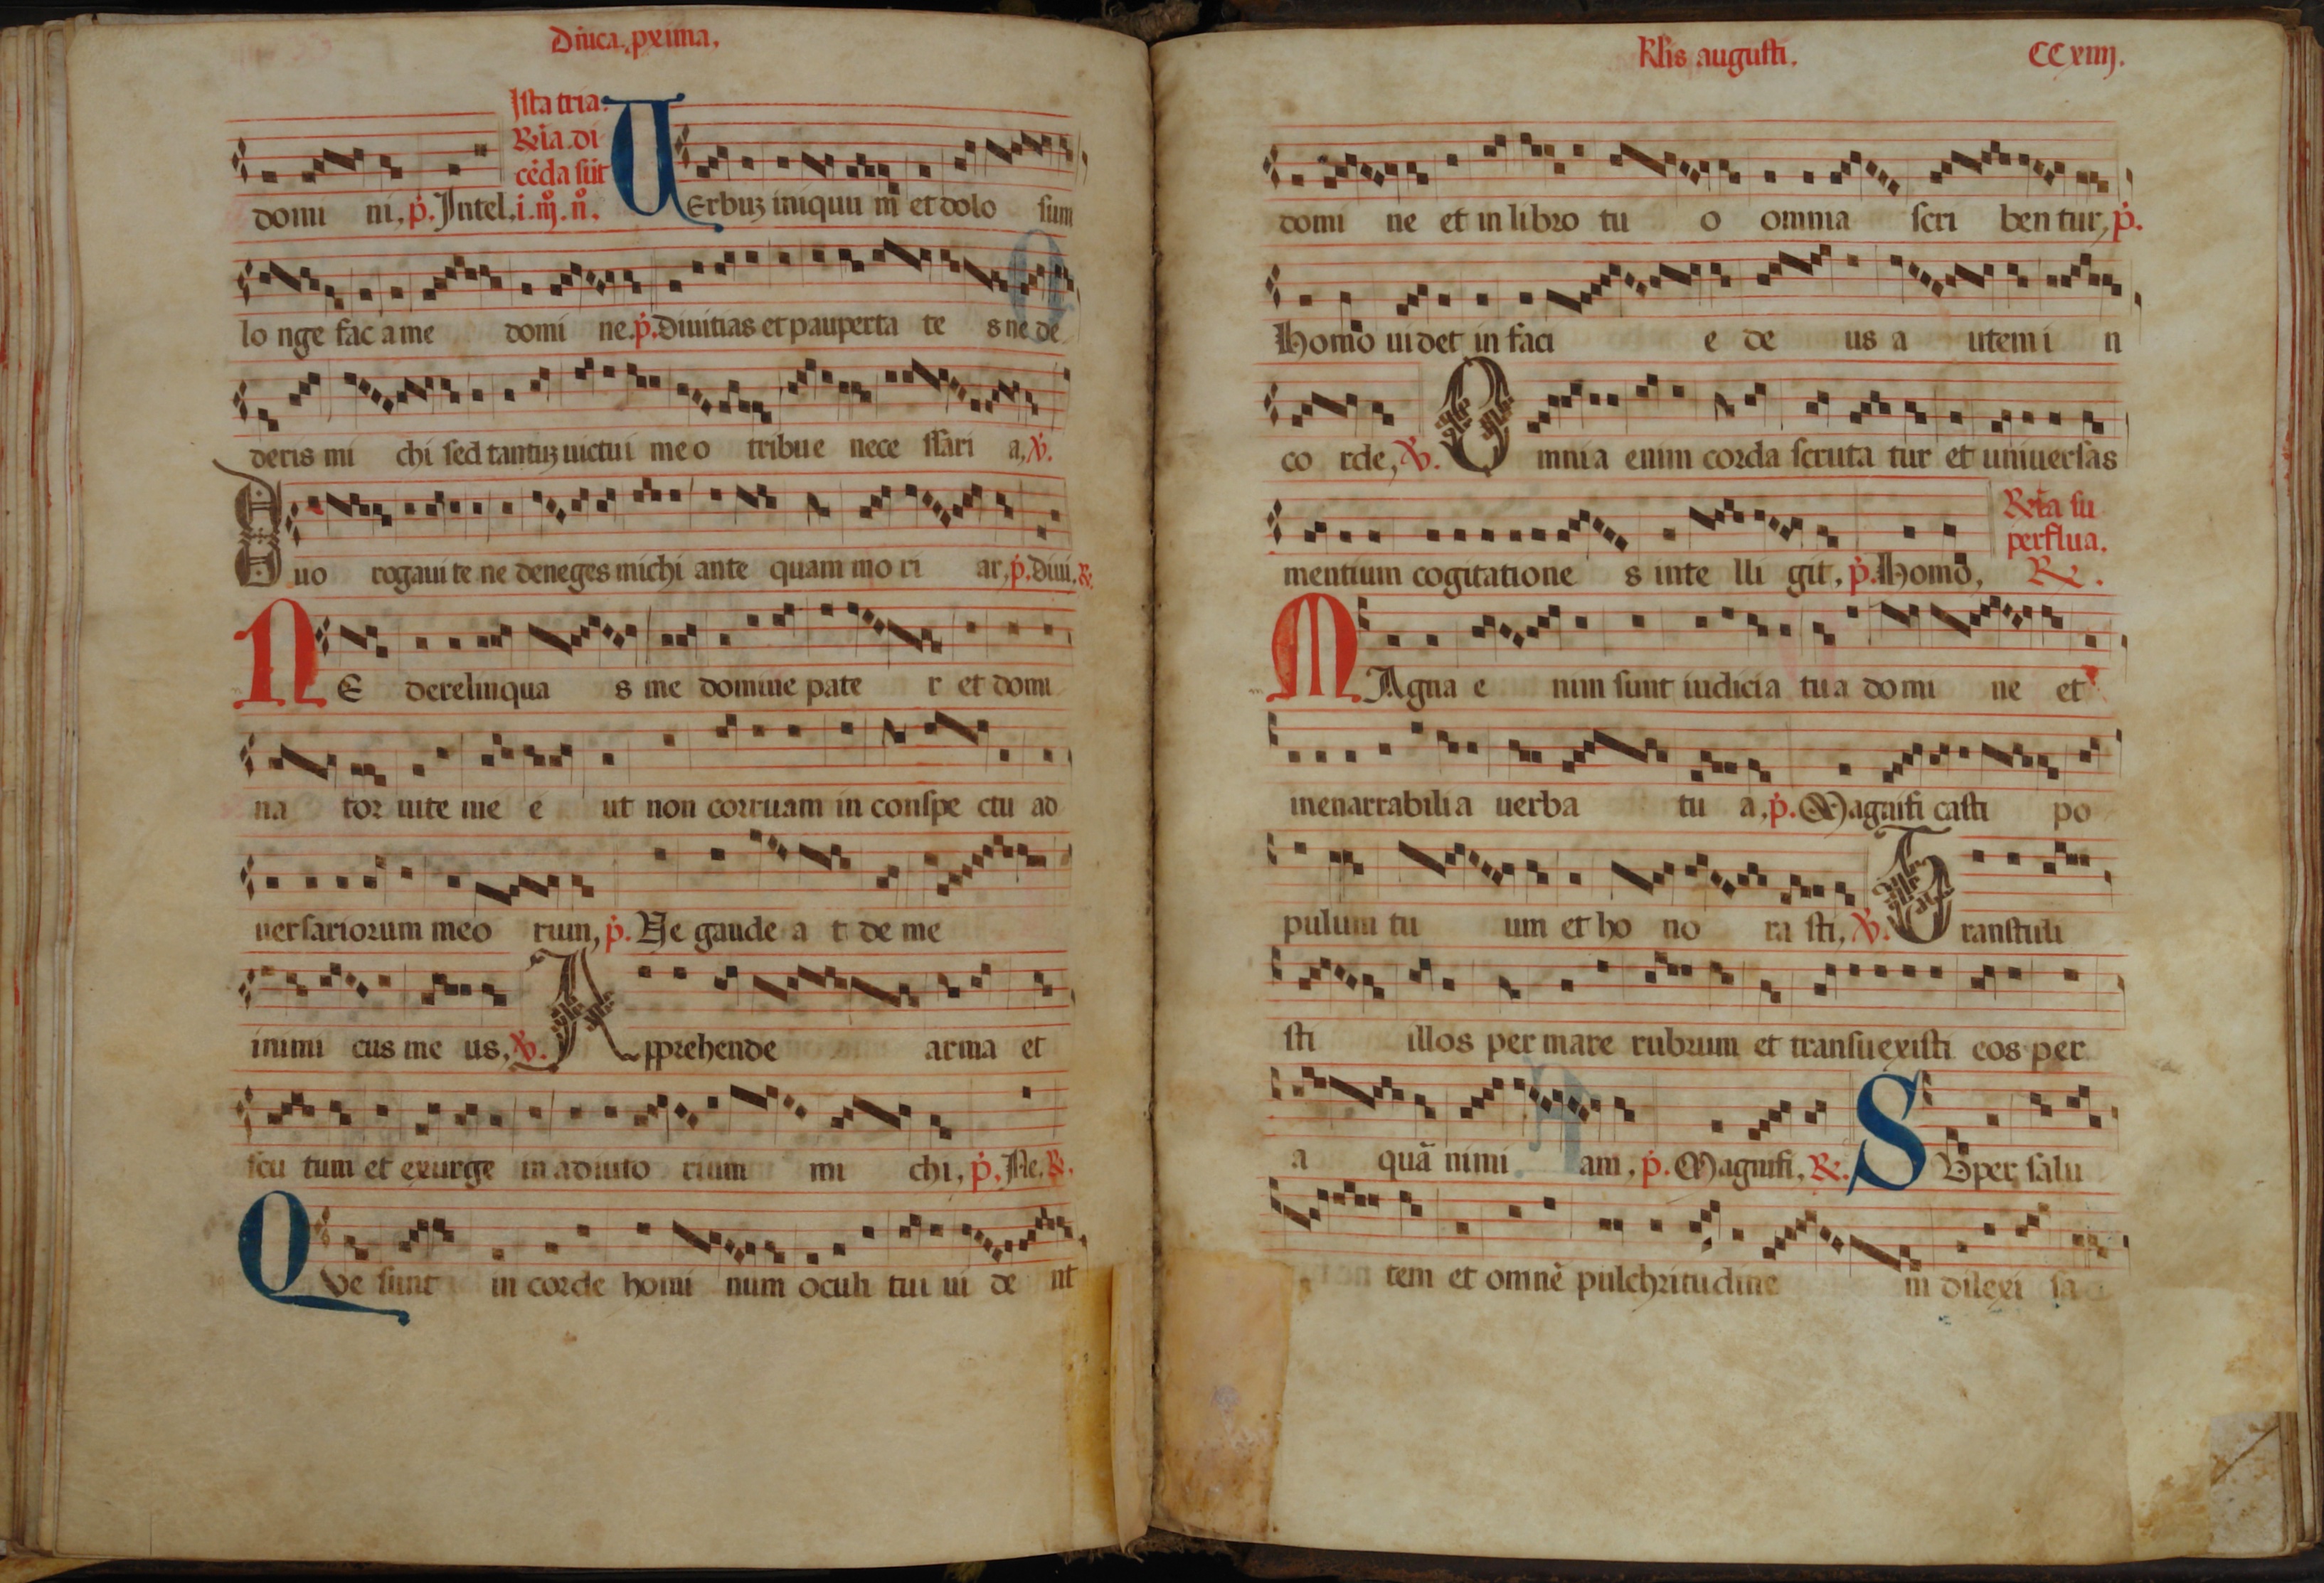 Dñica. pxima.
Ista tria.
Rña. di
cẽda sũt
domi ni, p̃. Intel. i. iij. n.
VErbuꝫ iniquu m et dolo sum
lo nge fac a me domi ne. p̃. Diuitias et pauperta te s ne de
deris mi chi sed tantuꝫ uictui me o tribue nece ssari a, ℣.
Duo rogaui te ne deneges michi ante quam mo ri ar, p̃. Diui. ℞.
NE derelinqua s me domine pate r et domi
na tor uite me e ut non corruam in conspe ctu ad
uersariorum meo rum, p̃. Ne gaude a t de me
inimi cus me us, ℣. Apprehende arma et
scu tum et exurge in adiuto rium mi chi, p̃. Ne. ℞.
QVe sunt in corde homi num oculi tui ui de nt
Klis augusti. CCxiiij.
domi ne et in libro tu o omnia scri ben tur, p̃.
Homo uidet in faci e de us a utem i n
co rde, ℣. Omnia enim corda scruta tur et uniuersas
Rña su
perflua.
mentium cogitatione s inte lli git, p̃. Homo, ℞.
MAgna e nim sunt iudicia tua domi ne et
inenarrabilia uerba tu a, p̃. Magnifi casti po
pulum tu um et ho no ra sti, ℣. Transtuli
sti illos per mare rubrum et transuexisti eos per
a quã nimi am, p̃. Magnifi, ℞. SVper salu
tem et omnẽ pulchritudine m dilexi sa